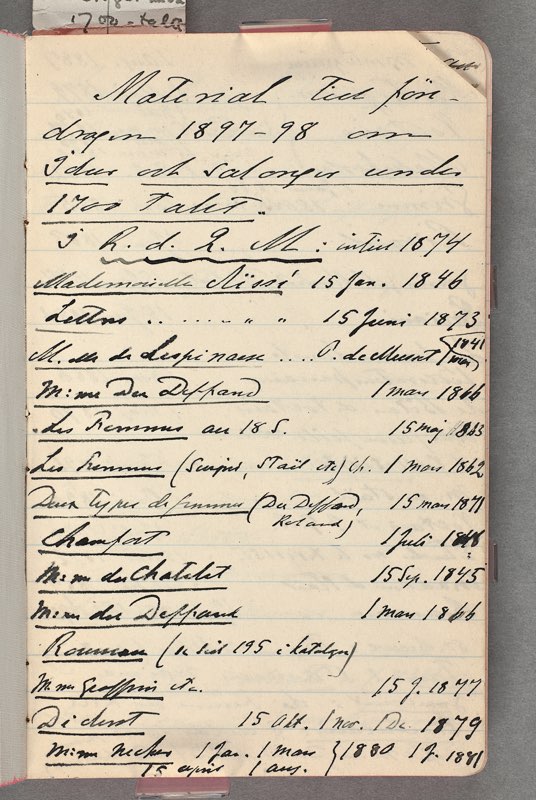 1700-talet
Material till före-
dragen 1897-98 om
Idéer och salonger under
1700 Talet.
I R. d. 2. M: intill 1874
Mademoiselle Aïssé 15 Jan. 1846
Lettres .. .... " " 15 Juni 1873
M. elle de Lespinasse .... P. de Musset (1841 mars)
M:me Du Deffand 1 mars 1866
Les Femmes au 18 S. 15 maj 1863
Les Femmes (Sévigné, Staël etc) 1 mars 1862
Deux types de femmes (Du Deffand, 15 mars 1871
Roland)
Chamfort 1 Juli 1848
M:me du Chatelet 15 Sep. 1845
M:me du Deffand 1 mars 1866
Rousseau (se sid 195 i katalogen)
M:me Geoffrin etc. 15 J. 1877
Diderot 15 Okt. 1 nov. 1 De. 1879
M:me Necker 1 Jan. 1 mars } 1880 1 J. 1881
15 april 1 aug.